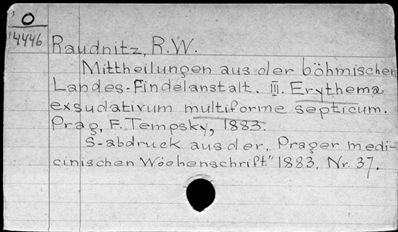 O
4446
Raudnitz, R.W.
Mittheilungen aus der böhmischen
Landes-Findelanstalt. III. Erythema
exsudativum multiforme septicum.
Prag, F. Tempsky, 1883.
S-abdruck aus der „Prager medi-
cinischen Wochenschrift" 1883, Nr. 37.